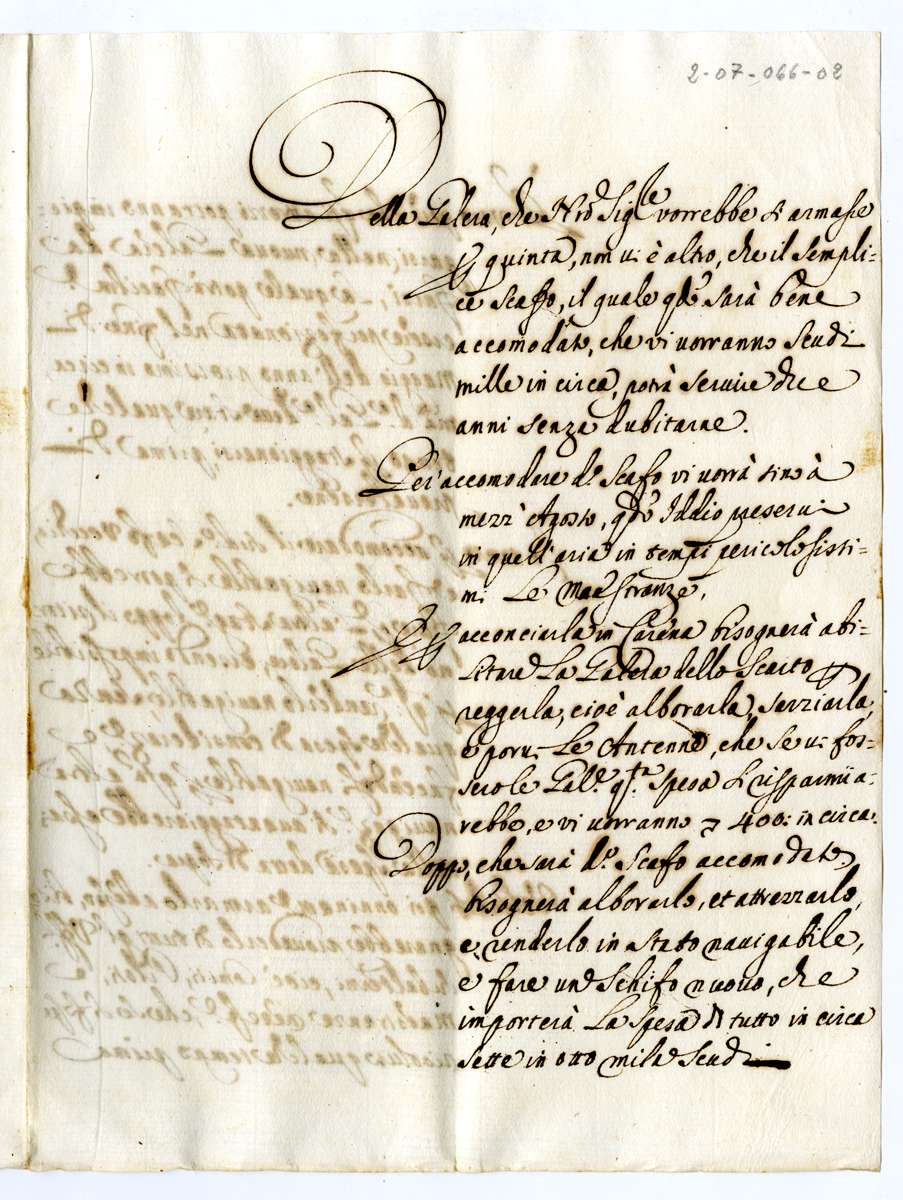 2-07-066-02
Della Galera, che Nrõ Sigre vorrebbe si armasse
quinta, non vi è altro, che il sempli-
ce scaffo, il quale qdo sarà bene
accomodato, che vi vorranno scudi
mille in circa, potrà servire due
anni senza dubitarne.
Per accomodare do. scafo vi vorrà sino à
mezz'Agosto, qdo Iddio preservi
in quell'aria in tempi pericolosissi-
mi le Maestranze,
acconciarla in Carena bisognerà abi-
litare la Galera dello Scarto
reggerla, cioè alborarla, sarziarla,
e porvi le Antenne, che se vi fos-
sero le Gale. qsta. spesa si risparmia-
rebbe, e vi vorranno 400: in circa.
Doppo, che sarà do. scafo accomodato
bisognerà alborarlo, et attrezzarlo,
e renderlo in stato navigabile,
e fare uno schifo nuovo, che
importerà la spesa di tutto in circa
sette in otto mila scudi